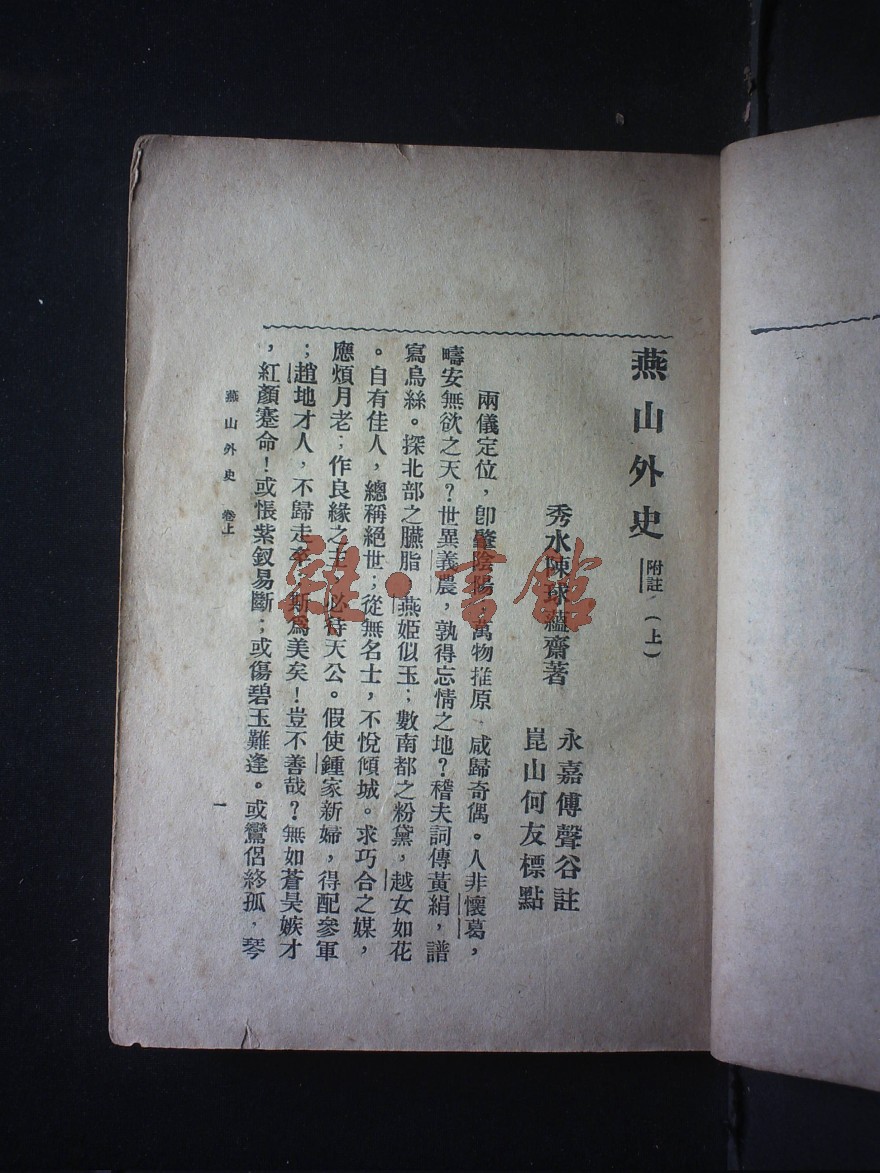 燕山外史 附註 （上）
秀水陳球蘊齋著
永嘉傅聲谷註
崑山何友標點
兩儀定位，卽肇陰陽，萬物推原，咸歸奇偶。人非懷葛，
疇安無欲之天？世異義農，孰得忘情之地？稽夫詞傳黃絹，譜
寫烏絲。探北部之臙脂，燕姬似玉；數南都之粉黛，越女如花
。自有佳人，總稱絕世；從無名士，不悅傾城。求巧合之媒，
應煩月老；作良緣之主，必待天公。假使鍾家新婦，得配參軍
；趙地才人，不歸走卒，斯爲美矣！豈不善哉？無如蒼昊嫉才
，紅顏蹇命！或悵紫釵易斷；或傷碧玉難逢。或鸞侶終孤，琴
燕山外史 卷上
一
雜·書館